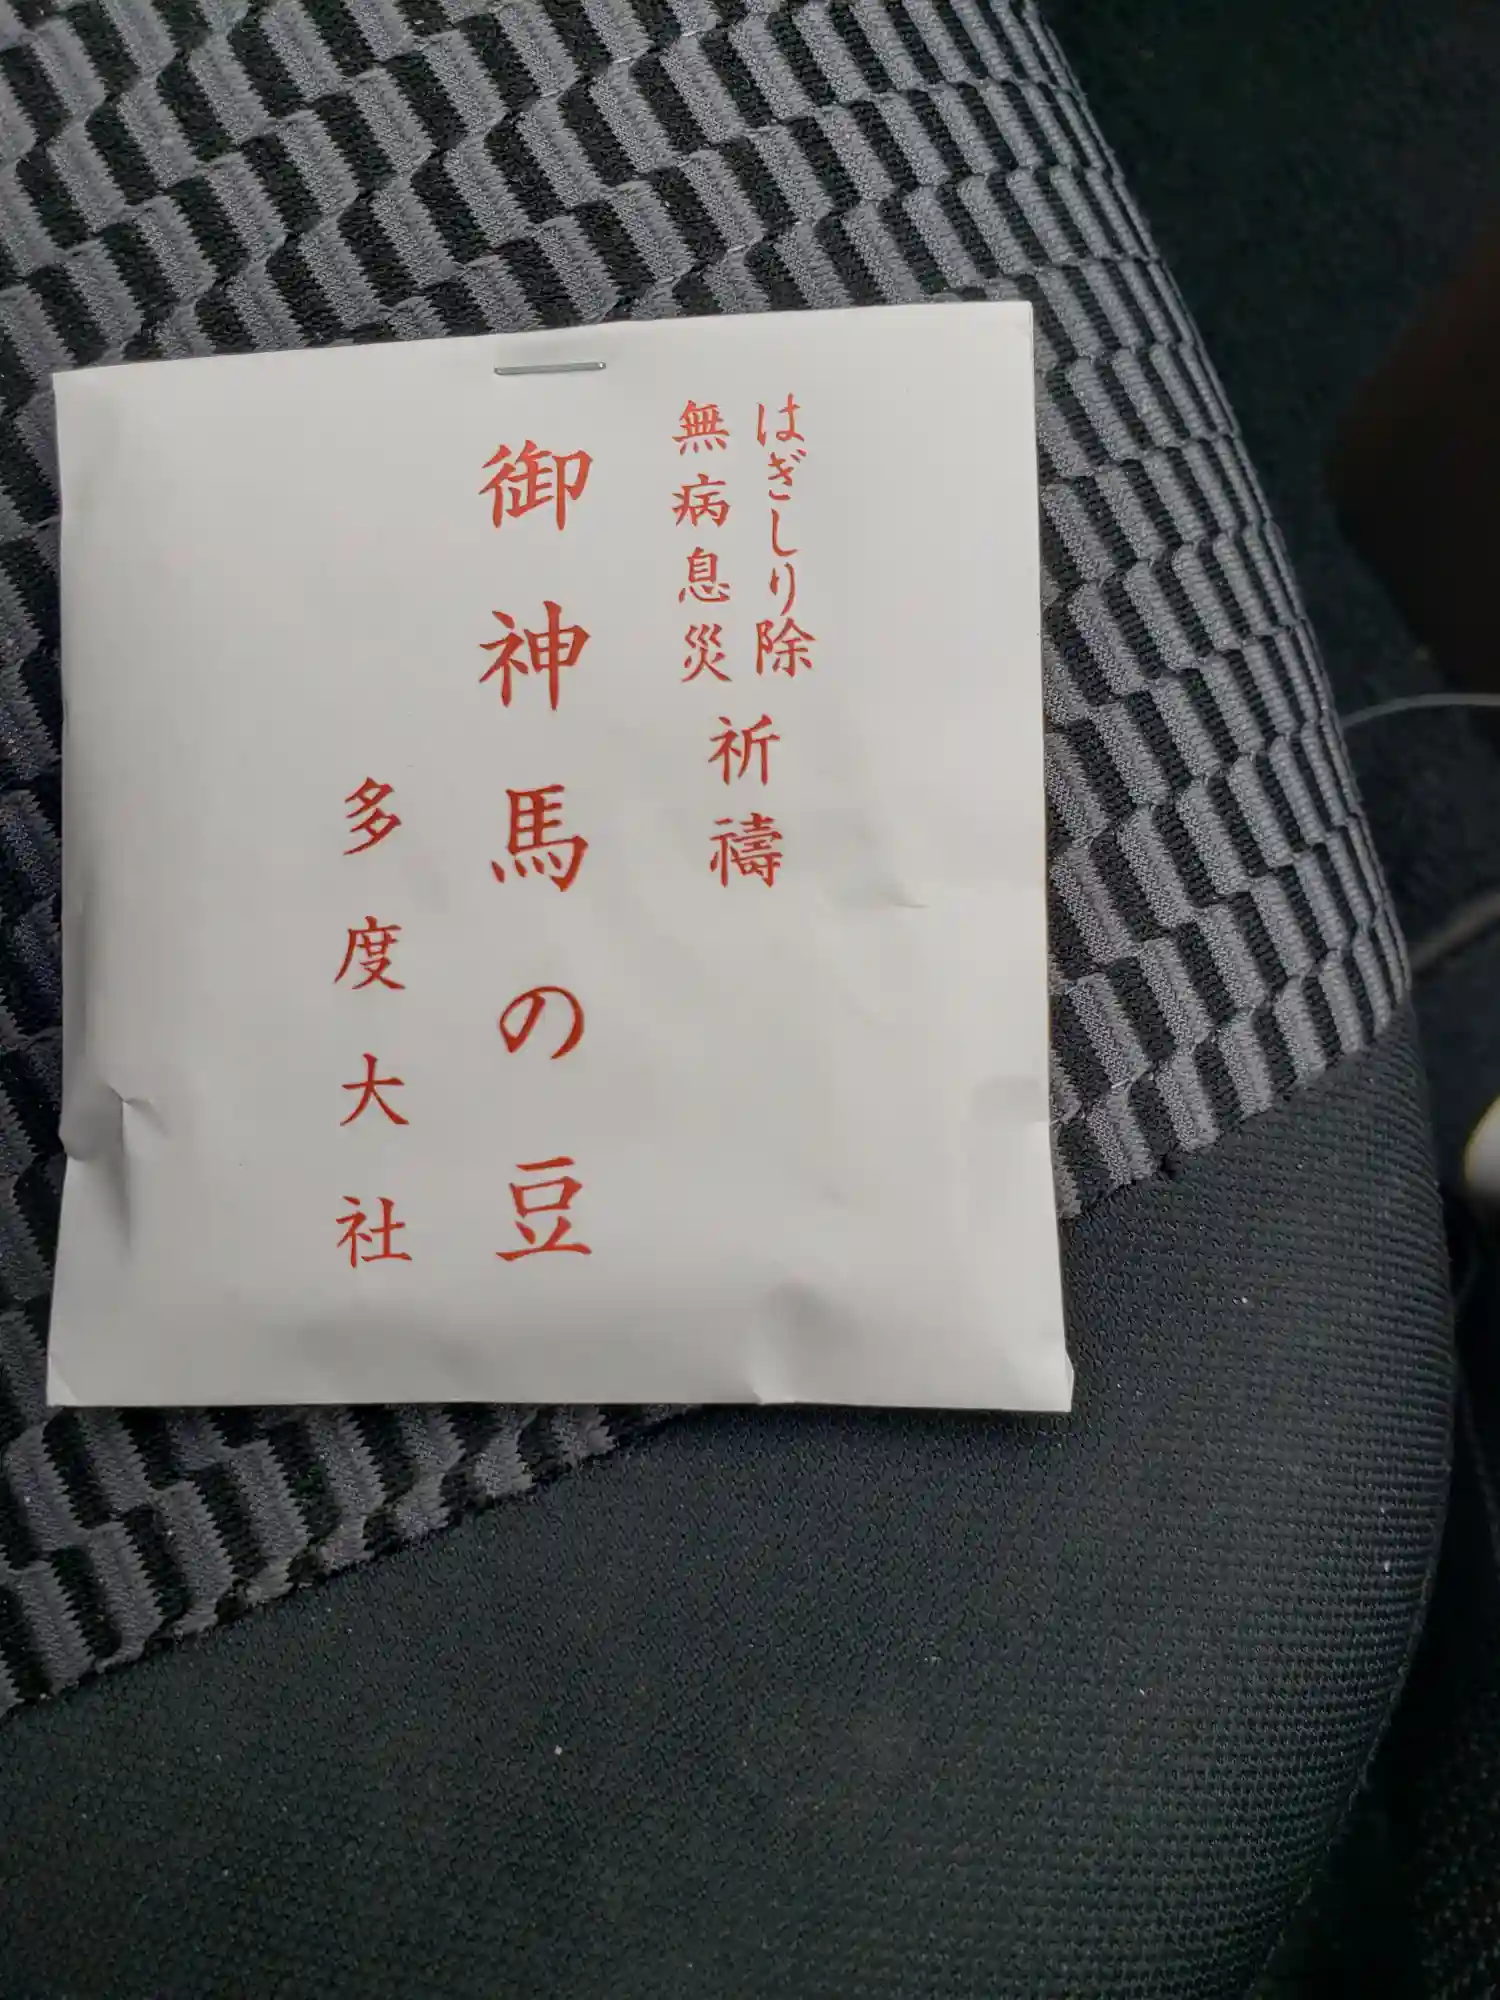 はぎしり除
無病息災
祈禱
御神馬の豆
多度大社